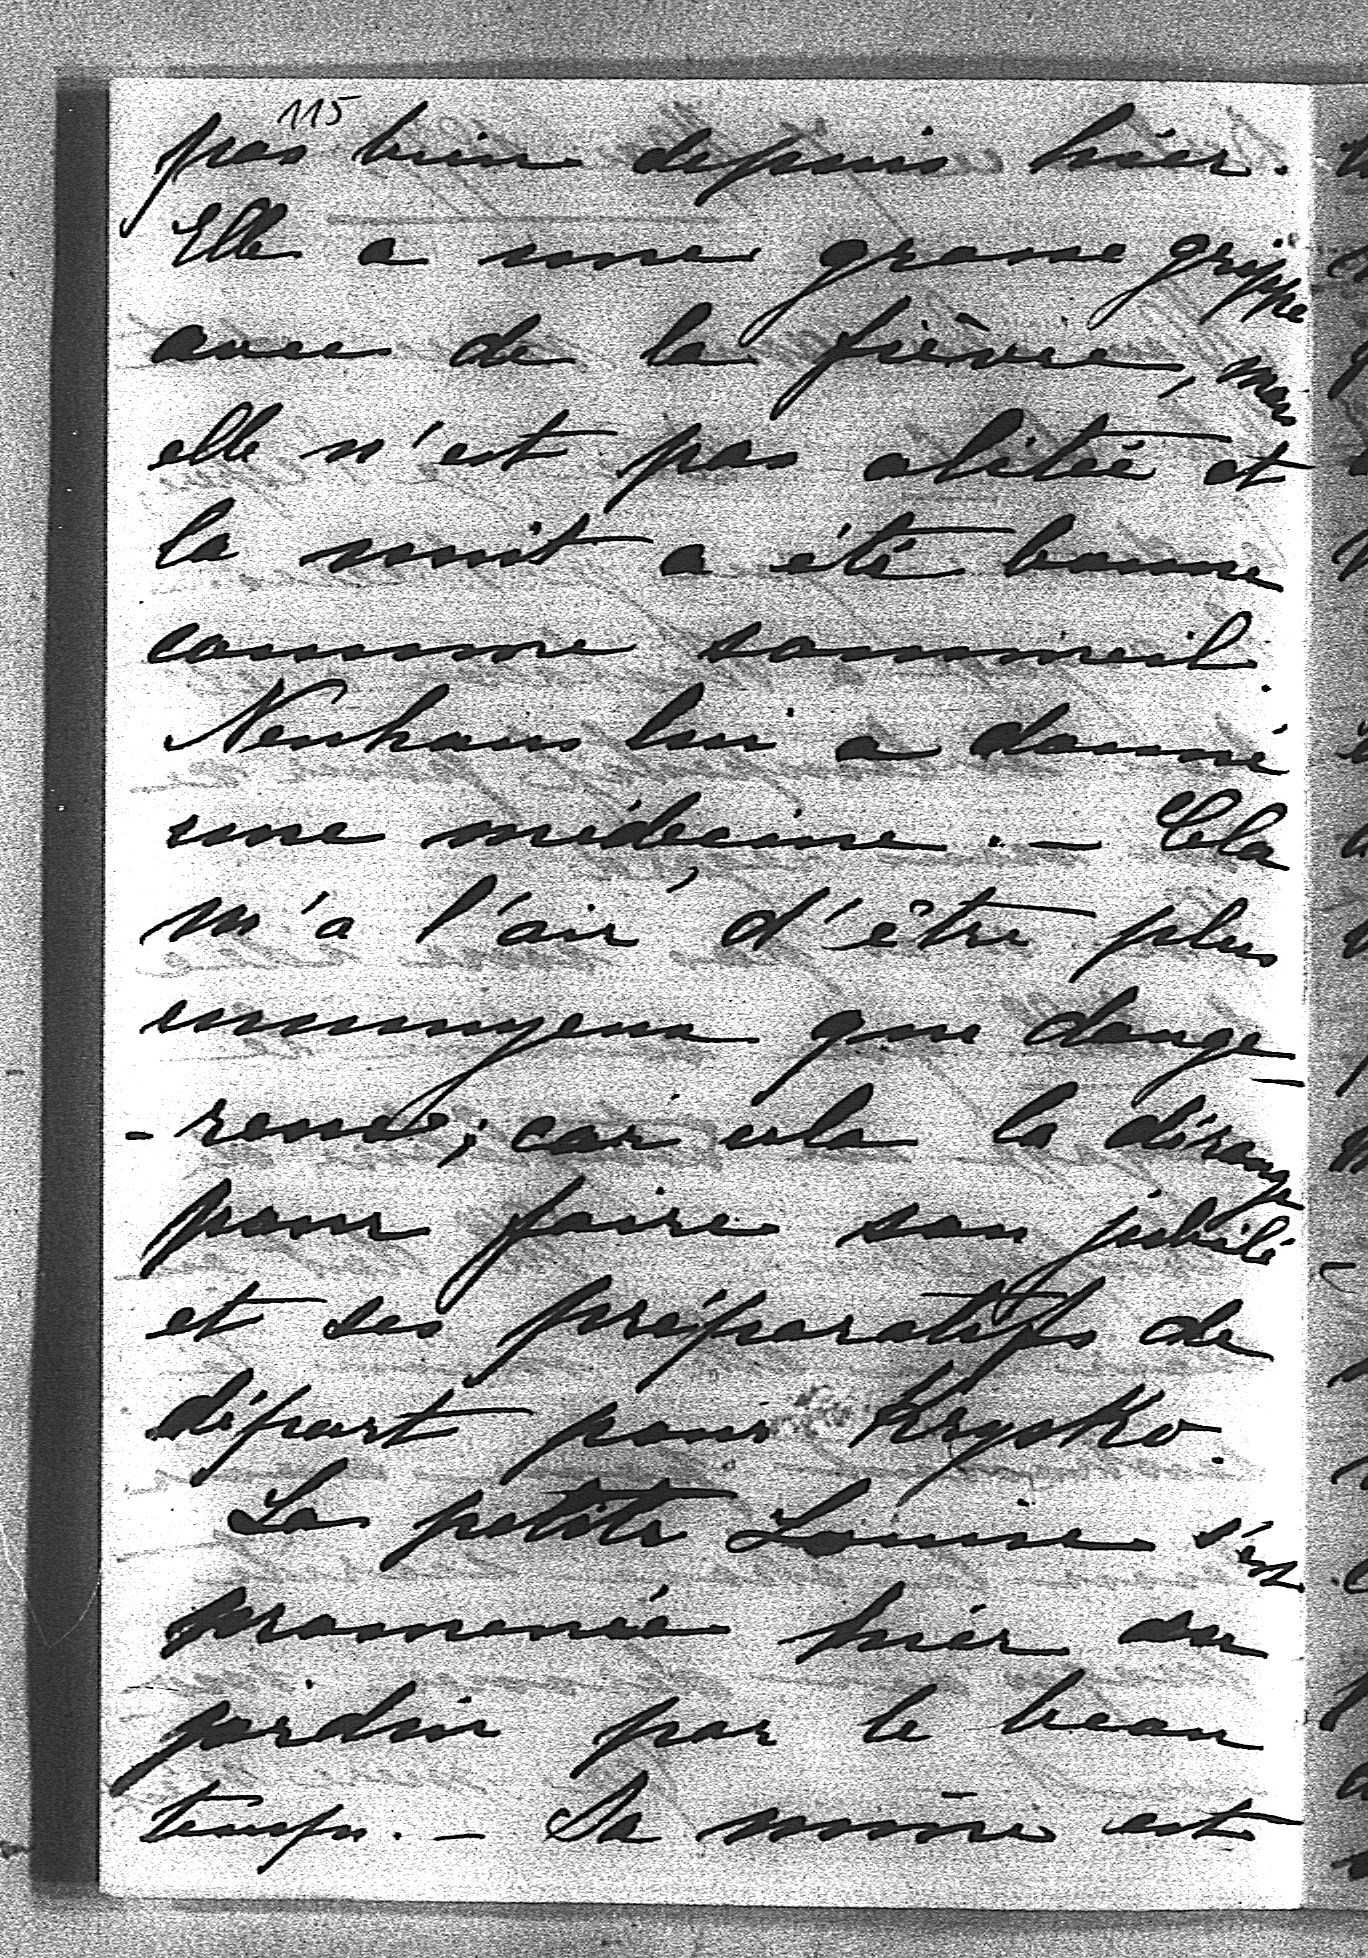 115
pas bien depuis hier.
Elle a une grosse grippe
avec de la fièvre, mais
elle n'est pas alitée et
la nuit a été bonne
comme sommeil.
Neuhaus lui a donné
une médecine. — Cela
m'a l'air d'être plus
ennuyeux que dange-
-reux; car cela la dérange
pour faire son jubilé
et ses préparatifs de
départ pour Krysko.
La petite Louise s'est
promenée hier au
jardin par le beau
temps. — Sa mère est